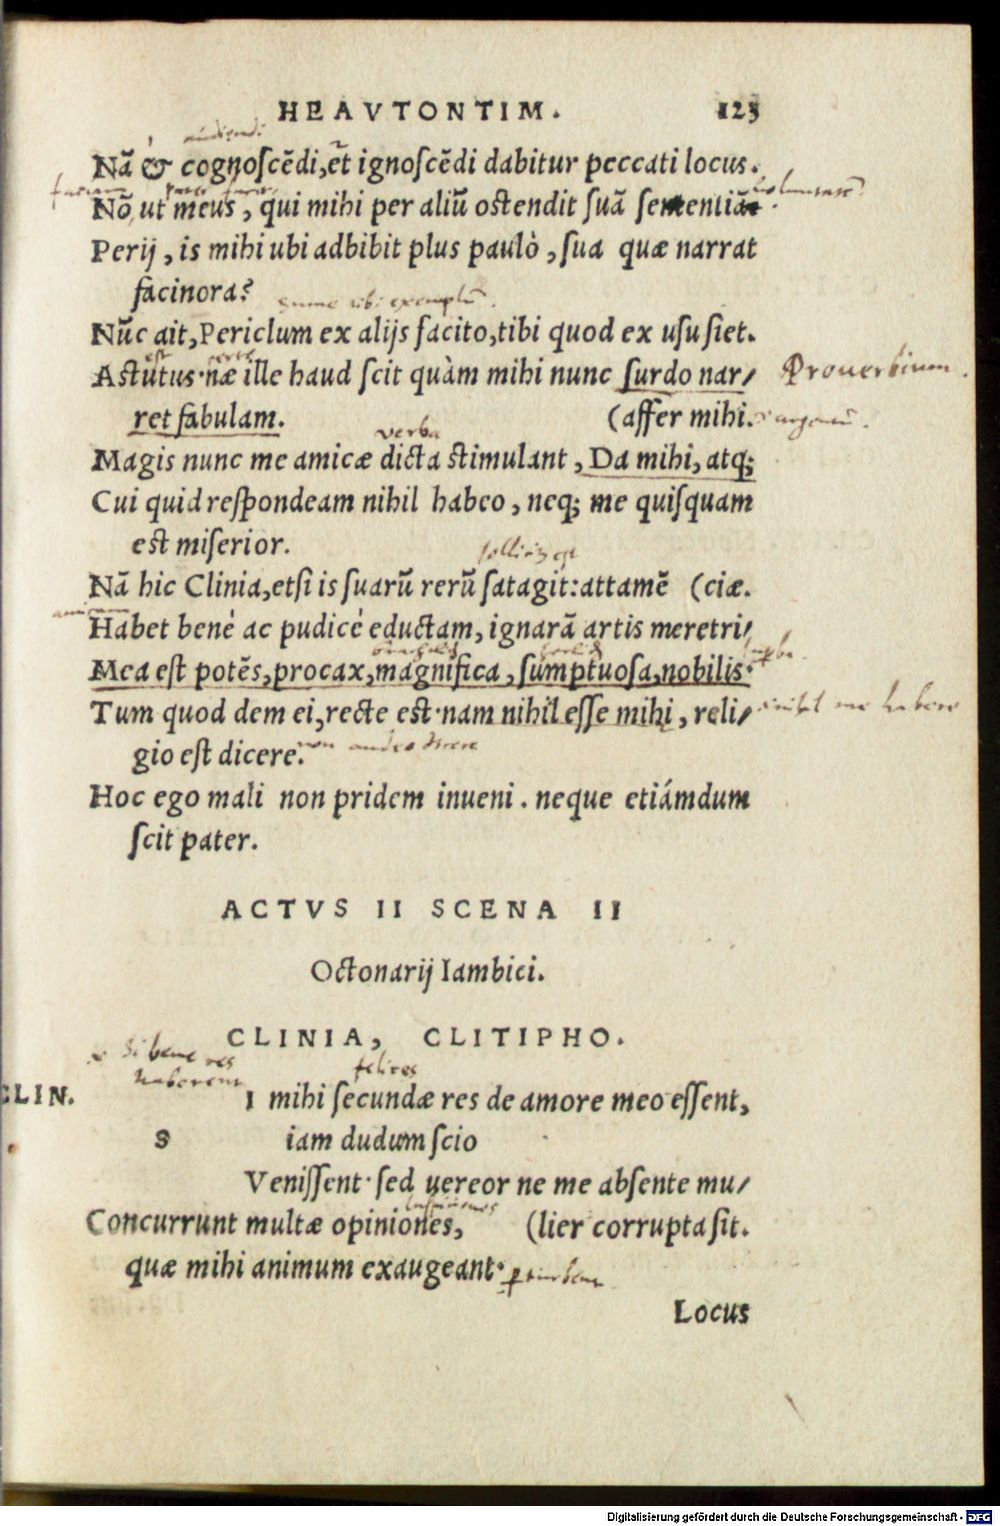 HEAVTONTIM. 123
Nã & cognoscẽdi, et ignoscẽdi dabitur peccati locus.
Nõ ut meus, qui mihi per aliũ ostendit suã sententiã
voluntatẽ
Perij, is mihi ubi adbibit plus paulò, sua quæ narrat
facinora?
sume tibi exemplũ.
Nũc ait, Periclum ex alijs facito, tibi quod ex usu siet.
est certe
Astutus· næ ille haud scit quàm mihi nunc surdo nar/
Prouerbium.
ret fabulam. (affer mihi.
argentũ.
verba
Magis nunc me amicæ dicta stimulant, Da mihi, atq;
Cui quid respondeam nihil habeo, neq; me quisquam
est miserior.
Nã hic Clinia, etsi is suarũ rerũ satagit: attamẽ (ciæ.
Habet benè ac pudicè eductam, ignarã artis meretri/
Mea est potẽs, procax, magnifica, sumptuosa, nobilis·
Tum quod dem ei, recte est· nam nihil esse mihi, reli/
nihil me habere
gio est dicere.
non audeo dicere
Hoc ego mali non pridem inueni. neque etiámdum
scit pater.
ACTVS II SCENA II
Octonarij Iambici.
CLINIA, CLITIPHO.
Si bene res
haberent
felices
CLIN. I mihi secundæ res de amore meo essent,
S iam dudum scio
Venissent· sed uereor ne me absente mu/
Concurrunt multæ opiniones, (lier corrupta sit.
quæ mihi animum exaugeant·
Locus
Digitalisierung gefördert durch die Deutsche Forschungsgemeinschaft - DFG